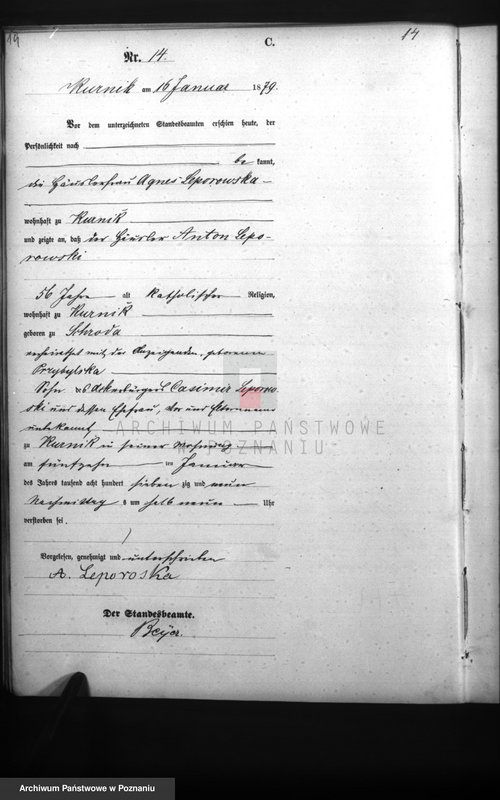 19
14
C.
Nr. 14.
Kurnik am 16 Januar 1879.
Vor dem unterzeichneten Standesbeamten erschien heute, der
Persönlichkeit nach
be kannt,
die Häuslerfrau Agnes Leporowska
wohnhaft zu Kurnik
und zeigte an, daß der Häusler Anton Lepo-
rowski
56 Jahre alt katholischer Religion,
wohnhaft zu Kurnik
geboren zu Schroda
verheirathet mit der Anzeigenden, geborenen
Przybylska
Sohn des Ackerbürgers Casimir Leporow-
ski und dessen Ehefrau, Vor und
unbekannt
zu Kurnik in seiner Wohnung
am fünfzehn ten Januar
des Jahres tausend acht hundert sieben zig und neun
Nachmittag s um halb neun Uhr
verstorben sei.
Vorgelesen, genehmigt und unterschrieben
A. Leporoska
Der Standesbeamte.
Beyer.
ARCHIWUM PAŃSTWOWE
W POZNANIU
Archiwum Państwowe w Poznaniu